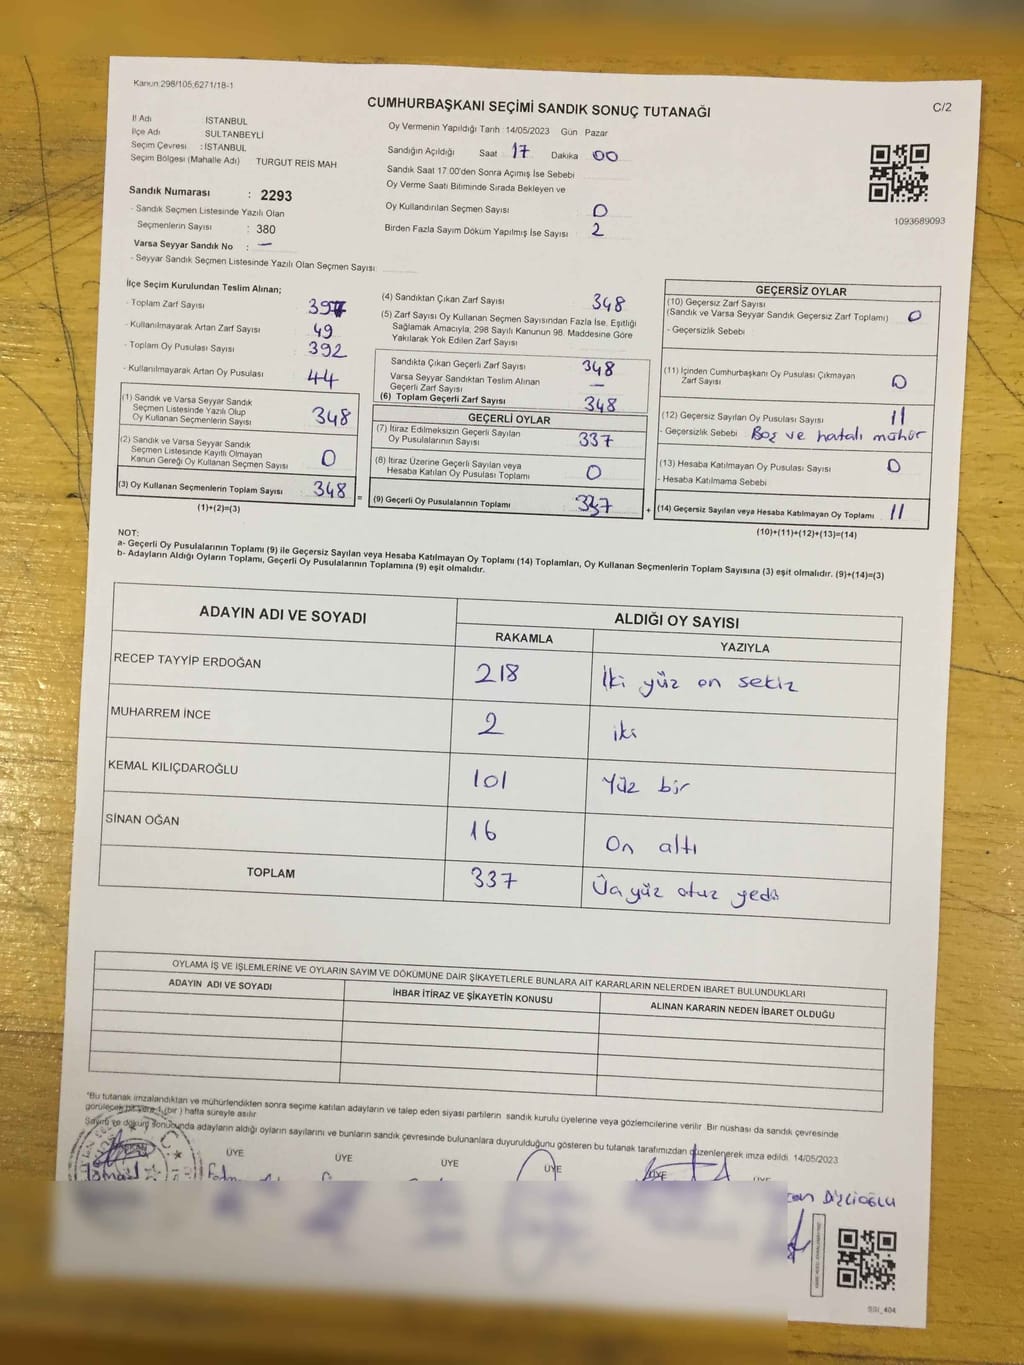 Kanun:298/105;6271/18-1
CUMHURBAŞKANI SEÇİMİ SANDIK SONUÇ TUTANAĞI
C/2
İl Adı İSTANBUL
İlçe Adı SULTANBEYLİ
Seçim Çevresi : İSTANBUL
Seçim Bölgesi (Mahalle Adı) TURGUT REİS MAH
Oy Vermenin Yapıldığı Tarih 14/05/2023 Gün Pazar
Sandığın Açıldığı Saat 17 Dakika 00
Sandık Saat 17.00'den Sonra Açımış İse Sebebi
Oy Verme Saati Bitiminde Sırada Bekleyen ve
Oy Kullandırılan Seçmen Sayısı 0
Birden Fazla Sayım Döküm Yapılmış İse Sayısı 2
1093689093
Sandık Numarası : 2293
- Sandık Seçmen Listesinde Yazılı Olan
Seçmenlerin Sayısı : 380
Varsa Seyyar Sandık No : —
- Seyyar Sandık Seçmen Listesinde Yazılı Olan Seçmen Sayısı:
İlçe Seçim Kurulundan Teslim Alınan;
- Toplam Zarf Sayısı 397
- Kullanılmayarak Artan Zarf Sayısı 49
- Toplam Oy Pusulası Sayısı 392
- Kullanılmayarak Artan Oy Pusulası 44
(1) Sandık ve Varsa Seyyar Sandık
Seçmen Listesinde Yazılı Olup
Oy Kullanan Seçmenlerin Sayısı 348
(2) Sandık ve Varsa Seyyar Sandık
Seçmen Listesinde Kayıtlı Olmayan
Kanun Gereği Oy Kullanan Seçmen Sayısı 0
(3) Oy Kullanan Seçmenlerin Toplam Sayısı 348
(1)+(2)=(3)
(4) Sandıktan Çıkan Zarf Sayısı 348
(5) Zarf Sayısı Oy Kullanan Seçmen Sayısından Fazla İse, Eşitliği
Sağlamak Amacıyla, 298 Sayılı Kanunun 98. Maddesine Göre
Yakılarak Yok Edilen Zarf Sayısı
Sandıkta Çıkan Geçerli Zarf Sayısı 348
Varsa Seyyar Sandıktan Teslim Alınan
Geçerli Zarf Sayısı —
(6) Toplam Geçerli Zarf Sayısı 348
GEÇERLİ OYLAR
(7) İtiraz Edilmeksizin Geçerli Sayılan
Oy Pusulalarının Sayısı 337
(8) İtiraz Üzerine Geçerli Sayılan veya
Hesaba Katılan Oy Pusulası Toplamı 0
= (9) Geçerli Oy Pusulalarının Toplamı 337
GEÇERSİZ OYLAR
(10) Geçersiz Zarf Sayısı
(Sandık ve Varsa Seyyar Sandık Geçersiz Zarf Toplamı) 0
- Geçersizlik Sebebi
(11) İçinden Cumhurbaşkanı Oy Pusulası Çıkmayan
Zarf Sayısı 0
(12) Geçersiz Sayılan Oy Pusulası Sayısı 11
- Geçersizlik Sebebi Boş ve hatalı mühür
(13) Hesaba Katılmayan Oy Pusulası Sayısı 0
- Hesaba Katılmama Sebebi
+ (14) Geçersiz Sayılan veya Hesaba Katılmayan Oy Toplamı 11
(10)+(11)+(12)+(13)=(14)
NOT:
a- Geçerli Oy Pusulalarının Toplamı (9) ile Geçersiz Sayılan veya Hesaba Katılmayan Oy Toplamı (14) Toplamları, Oy Kullanan Seçmenlerin Toplam Sayısına (3) eşit olmalıdır. (9)+(14)=(3)
b- Adayların Aldığı Oyların Toplamı, Geçerli Oy Pusulalarının Toplamına (9) eşit olmalıdır.
ADAYIN ADI VE SOYADI ALDIĞI OY SAYISI
RAKAMLA YAZIYLA
RECEP TAYYİP ERDOĞAN 218 İki yüz on sekiz
MUHARREM İNCE 2 iki
KEMAL KILIÇDAROĞLU 101 Yüz bir
SİNAN OĞAN 16 On altı
TOPLAM 337 Üç yüz otuz yedi
OYLAMA İŞ VE İŞLEMLERİNE VE OYLARIN SAYIM VE DÖKÜMÜNE DAİR ŞİKAYETLERLE BUNLARA AİT KARARLARIN NELERDEN İBARET BULUNDUKLARI
ADAYIN ADI VE SOYADI İHBAR İTİRAZ VE ŞİKAYETİN KONUSU ALINAN KARARIN NEDEN İBARET OLDUĞU
*Bu tutanak imzalandıktan ve mühürlendikten sonra seçime katılan adayların ve talep eden siyasi partilerin sandık kurulu üyelerine veya gözlemcilerine verilir. Bir nüshası da sandık çevresinde
görülecek bir yere 1 (bir) hafta süreyle asılır.
Sayım ve döküm sonucunda adayların aldığı oyların sayılarını ve bunların sandık çevresinde bulunanlara duyurulduğunu gösteren bu tutanak tarafımızdan düzenlenerek imza edildi. 14/05/2023
ÜYE ÜYE ÜYE ÜYE ÜYE ÜYE
İsmail
Dizlioğlu
SSİ_404